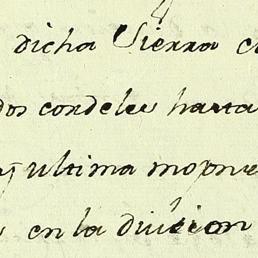 dicha Sierra
dos cordeles hasta
ultima
en la division